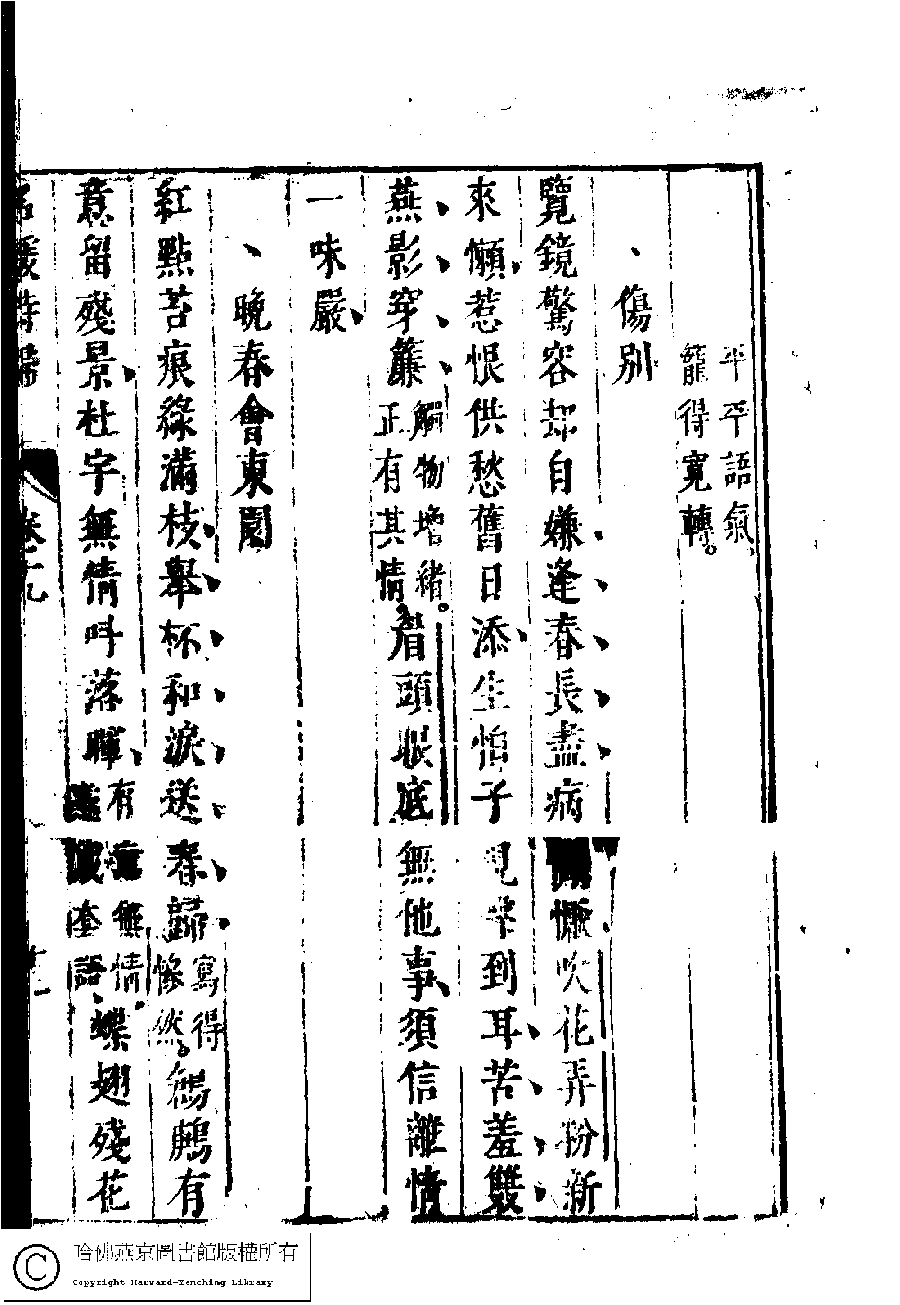 平平語氣
籠得寬轉。
、傷別
覽鏡驚容却自嫌逢春長盡病懨懨吹花弄粉新
來懶惹恨供愁舊日添生怕子規聲到耳苦羞雙
燕影穿簾觸物增緒。正有其情。眉頭眼底無他事須信離情
一味嚴
、晚春會東園
紅點苔痕綠滿枝舉杯和淚送春歸寫得慘然。鶬鶊有
意留殘景杜宇無情呌落暉有意無情。成套語蝶翅殘花
名媛詩歸 卷十九 十一
哈佛燕京圖書館版權所有
Copyright Harvard-Yenching Library